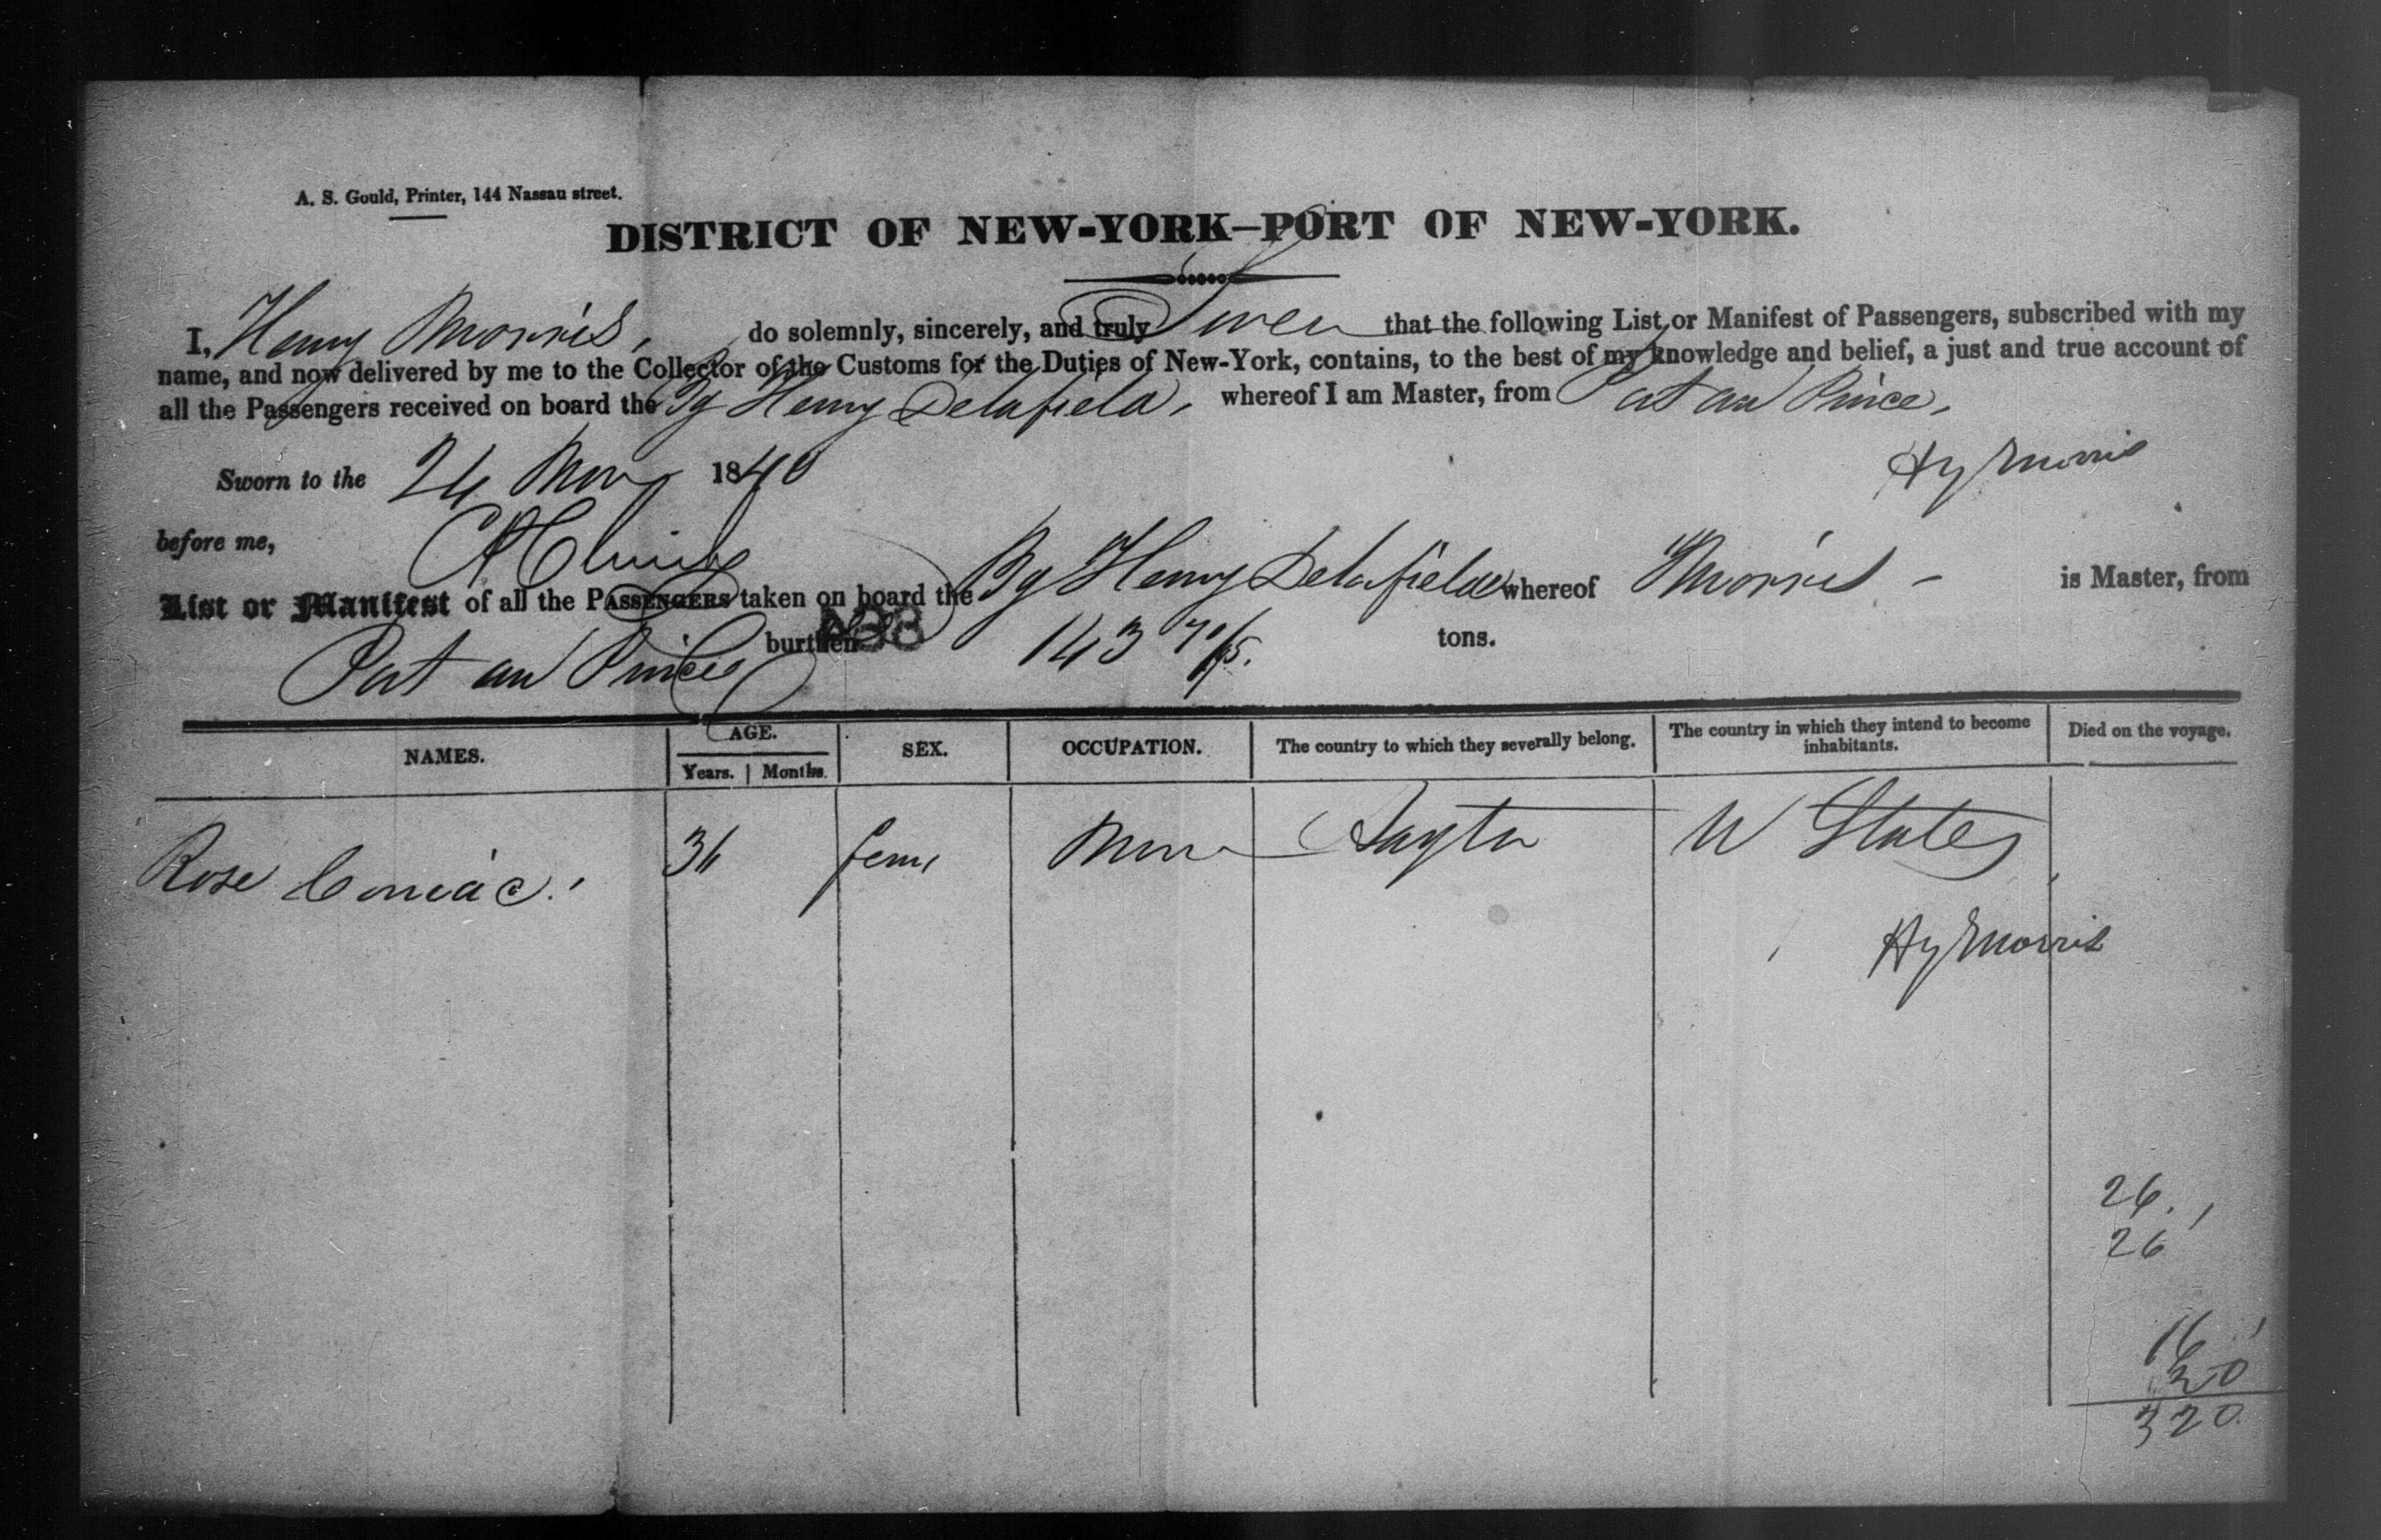 A. S. Gould, Printer, 144 Nassau street.
DISTRICT OF NEW-YORK—PORT OF NEW-YORK.
I, Henry Morris, do solemnly, sincerely, and truly Swear that the following List or Manifest of Passengers, subscribed with my
name, and now delivered by me to the Collector of the Customs for the Duties of New-York, contains, to the best of my knowledge and belief, a just and true account of
all the Passengers received on board the Bg Henry Delafield, whereof I am Master, from Port au Prince,
Sworn to the 24 Nov 1840
Hy Morris
before me,
List or Manifest of all the PASSENGERS taken on board the Bg Henry Delafield whereof Morris - is Master, from
Port au Prince burthen 143 tons.
NAMES. AGE. SEX. OCCUPATION. The country to which they severally belong. The country in which they intend to become inhabitants. Died on the voyage.
Years. Months.
Rose Coniac. 36 fem None Hayta U States
Hy Morris
26.
26
16
20
320